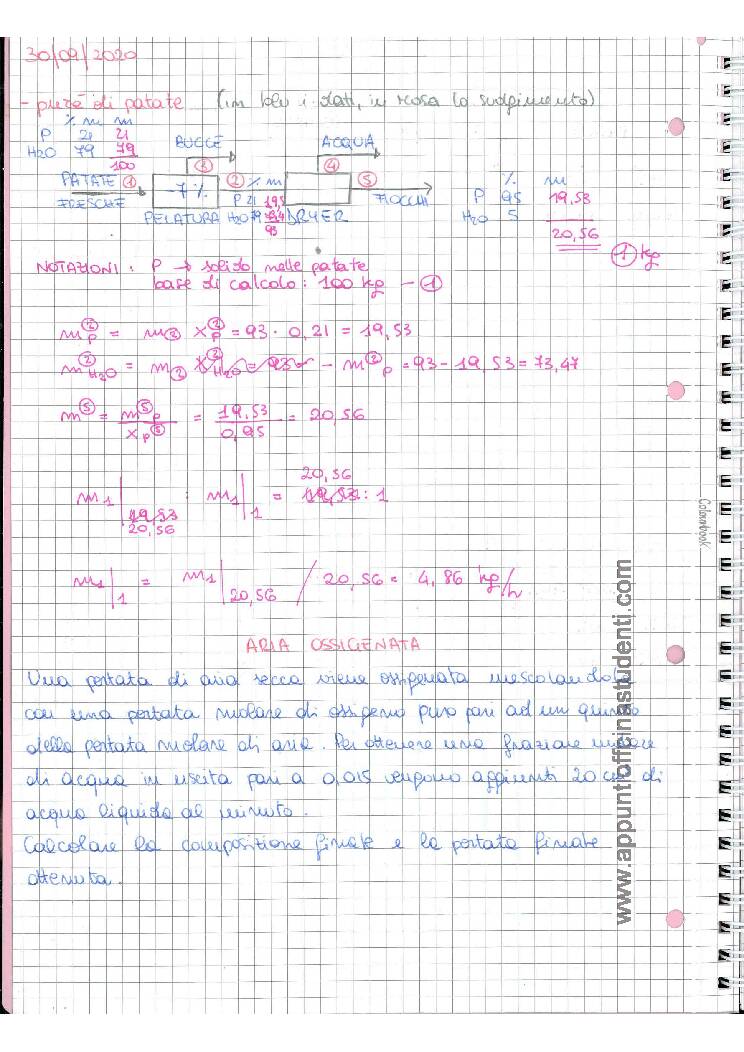 30/09/2020
- purè di patate (in blu i dati, in rosa lo svolgimento)
% m m
P 21 21
H2O 79 79
100
BUCCE
ACQUA
③
④
PATATE ①
FRESCHE
-7%
PELATURA
② % m
P 21 19,5
H2O 79
93
DRYER
⑤
FIOCCHI
% m
P 95 19,53
H2O 5
20,56
① kg
NOTAZIONI : P → solido nelle patate
base di calcolo : 100 kg - ①
m②P = m② x②P = 93 · 0,21 = 19,53
m②H2O = m② x②H2O = 93 - m②P = 93 - 19,53 = 73,47
m⑤ = m⑤P / xP⑤ = 19,53 / 0,95 = 20,56
20,56
m1 | : m1 |1 = 19,53 : 1
19,53
20,56
m1|1 = m1|20,56 / 20,56 = 4,86 kg/h
ARIA OSSIGENATA
Una portata di aria secca viene ossigenata mescolandola
con una portata molare di ossigeno puro pari ad un quinto
della portata molare di aria. Per ottenere una frazione molare
di acqua in uscita pari a 0,015 vengono aggiunti 20 cm³ di
acqua liquida al minuto.
Calcolare la composizione finale e la portata finale
ottenuta.
Colourbook
www.appuntiofficinastudenti.com